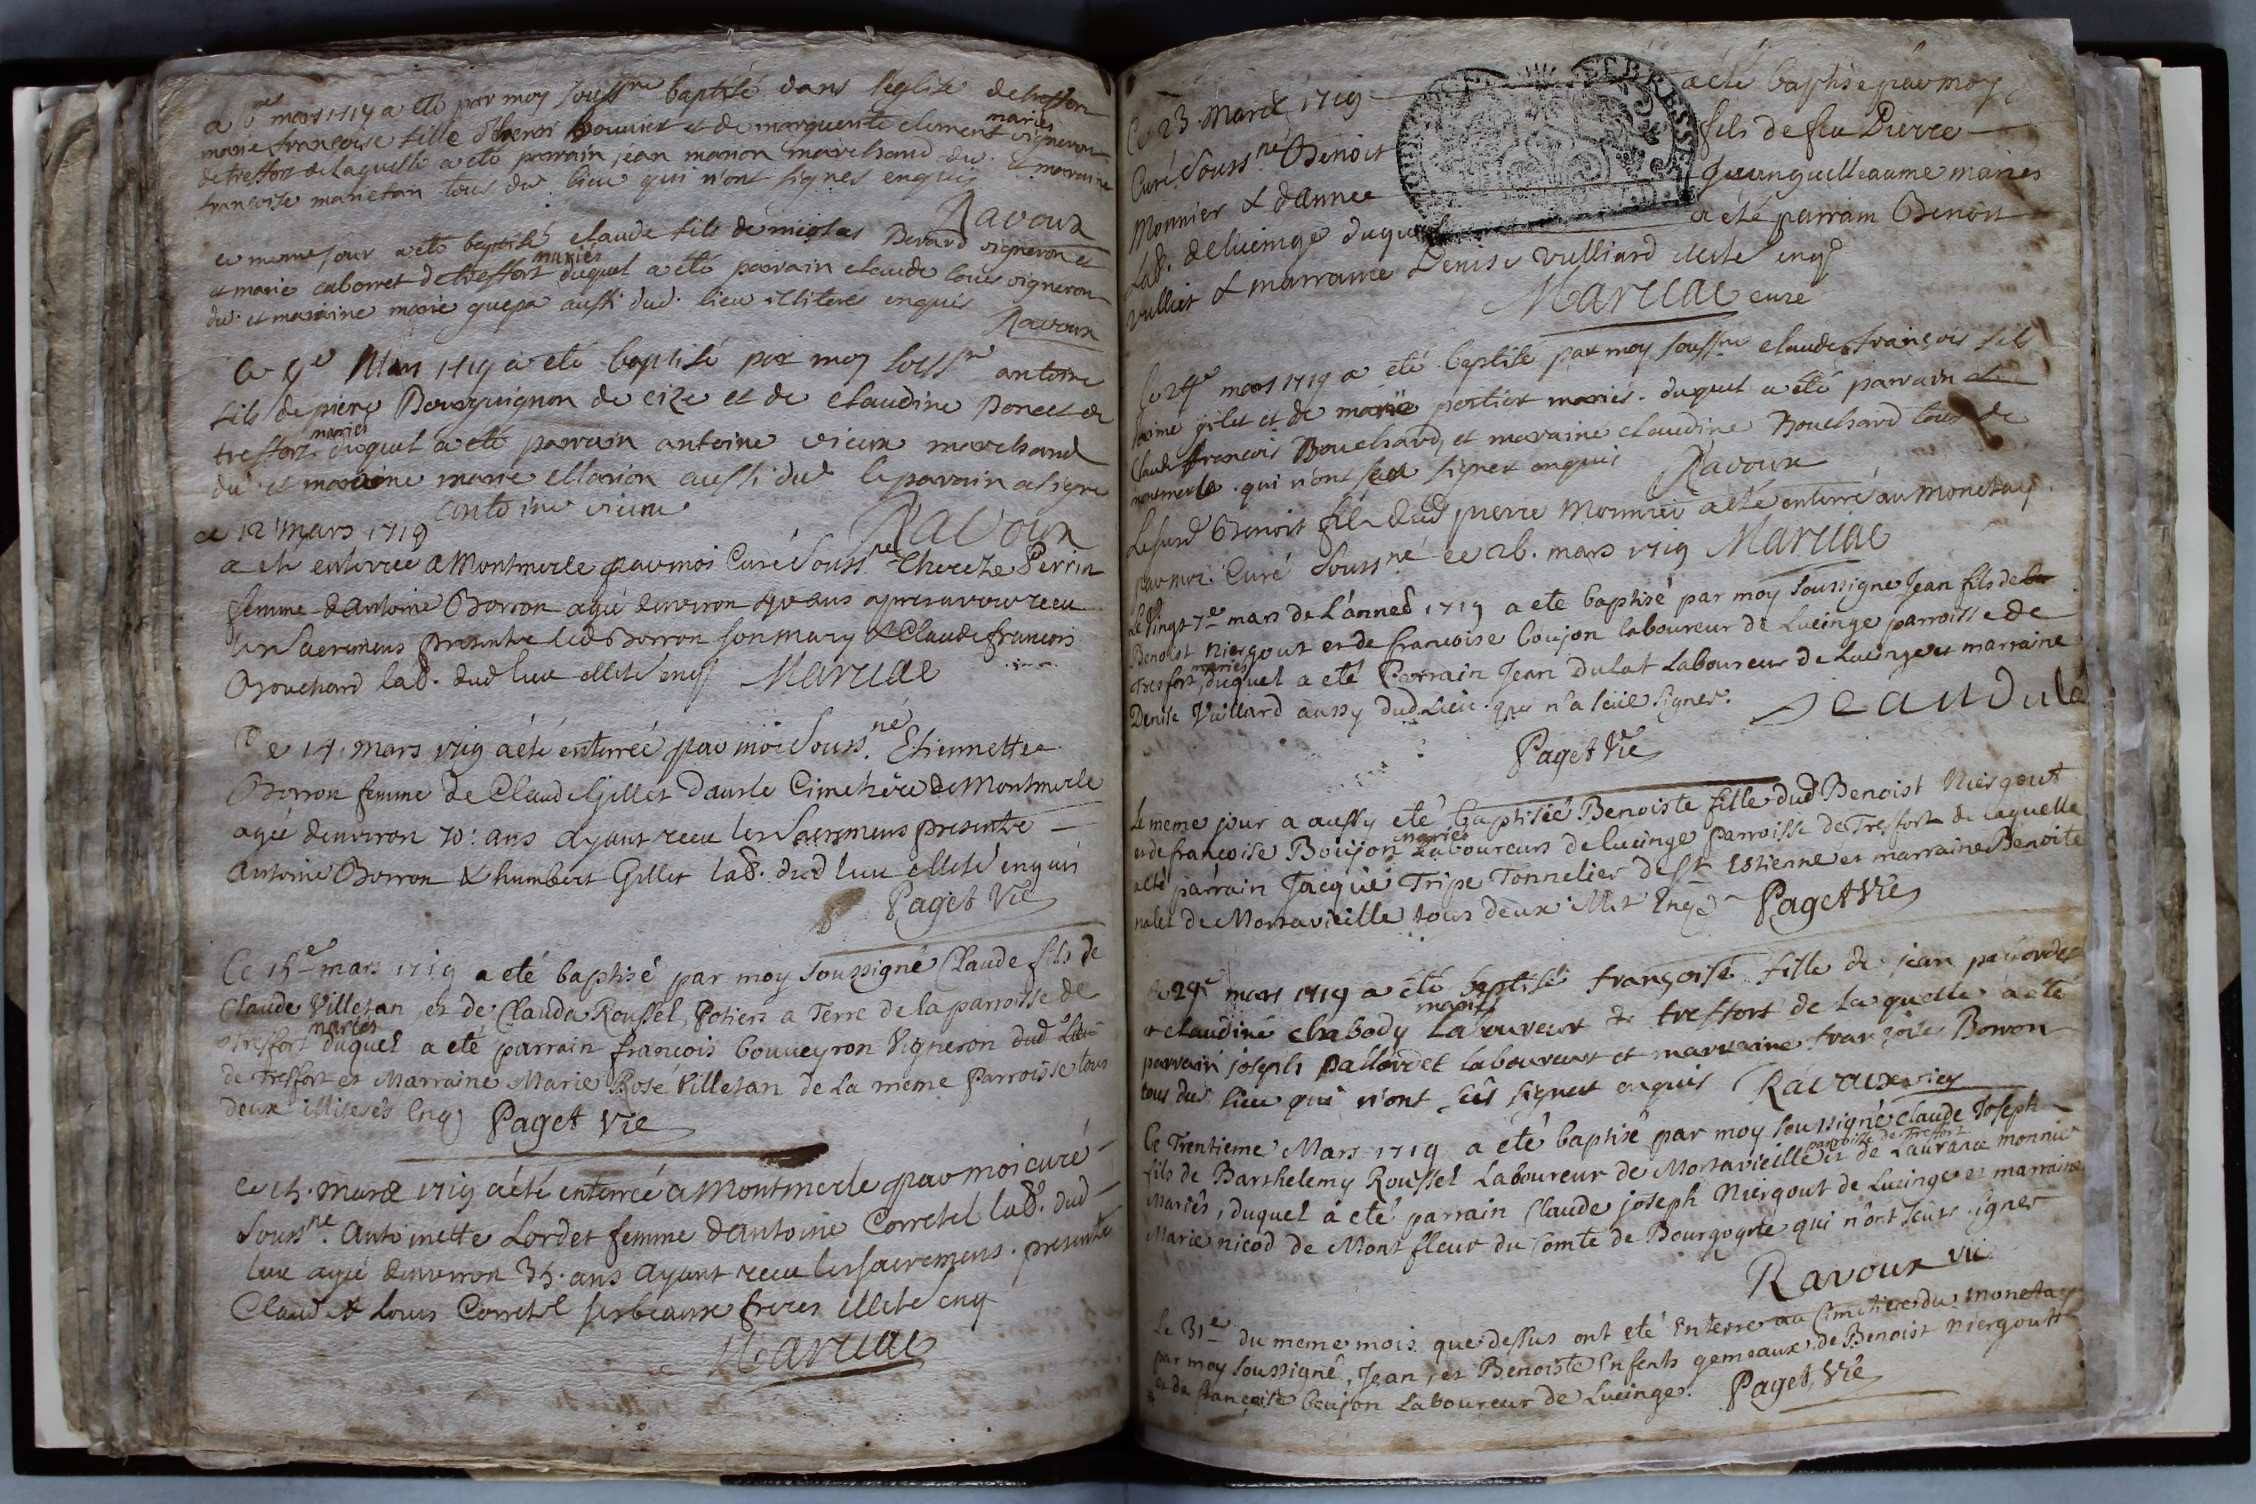 mars 1719 a eté par moy souss.ne baptisé dans l'eglise de treffort
marie françoise fille d' bouvier et de marguerite clement maries vigneron
de treffort de laquelle a eté parrain jean marion marchand dud. & maraine
françoise manetan tous dud. lieu qui n'ont signes enquis
Ravoux
ce meme jour a eté baptisé claude fils de nicolas Berard vigneron et
et marie caborret de treffort maries duquel a eté parrain claude vigneron
dud. et maraine marie guepa aussi dud. lieu illiteres enquis
Ravoux
Ce 9e Mars 1719 a eté baptisé par moy souss.ne antoine
fils de piere Bourguignon de cize et de claudine Poncet de
treffort maries duquel a eté parrain antoine vieux marchand
dud et maraine marie Marion aussi dud le parain a signe
antoine vieux
Ravoux
ce 12 mars 1719
a eté enterree a Montmerle par moi Curé Souss.né Thereze Perrin
femme d'antoine Borron agée denviron ans apres avoir receu
les Sacremens presents led Borron son mary & Claude francois
Bouchard lab. dud lieu illité enq
Maruac
Ce 14. mars 1719 a été enterrée par moi Souss.né Etiennette
Borron femme de Claude Gillet dans le Cimetiere de Montmerle
agée denviron 70. ans ayant receu les Sacremens presents
Antoine Borron & humbert Gillet lab. dud lieu illité enquis
Paget Vie
Ce 15e mars 1719 a eté baptisé par moy Soussigné Claude fils de
Claude Villetan et de Clauda Roussel, Potiers a Terre de la parroisse de
Treffort maries duquel a eté parrain francois bouveyron Vigneron dud Lieu
de Treffort et Marraine Marie Rosé Villetan de La meme Parroisse tous
deux illiterés Enq Paget Vie
ce 15. mars 1719 a été enterrée a Montmerle par moi curé
Souss.ne Antoinette Lordet femme d'antoine Corretel lab. dud
lieu agée denviron 35. ans ayant receu les sacremens. presents
Claude & Louis Corretel ses beaux freres illité enq
Maruac
Ce 23. Mars 1719 a été baptisé par moy
Curé Souss.né Benoit fils de feu Pierre
Monnier & d'annee maries
Lab. de lucinge duquel a été parrain Benoit
vulliet & marraine Denise vulliard illité enq
Maruac curé
Ce 24e mars 1719 a eté baptisé par moy souss.ne claude françois fils
gilet et de marie portier mariés. duquel a été parrain
Claude françois Bouchard, et maraine claudine Bouchard tous de
montmerle. qui n'ont sceu signer enquis Ravoux
Le Benoit fils dud pierre Monnier a été enterré au monetay
par moi Curé Souss.né ce 26. mars 1719 Maruac
Le Vingt 7e mars de L'anneé 1719 a eté baptisé par moy Soussigné Jean fils de
Benoist Niergout et de francoise boujon laboureur de Lucinge parroisse de
Tresfort, maries duquel a eté Parrain Jean dulat Laboureur de Lucinge et marraine
Denise Vulliard aussy dud Lieu. qui n'a sceu signer.
Jean Dula
Paget Vie
Le meme jour a aussy eté baptisée Benoiste fille dud Benoist Niergout
et de françoise Boujon maries Laboureurs de lucinge parroisse de Tresfort de laquelle
a eté parrain Jacque Tripe Tonnelier de St. Estienne et marraine Benoite
nalet de Montavieille tous deux illit Enq Paget Vie
Ce 29e mars 1719 a été baptisée françoise fille de jean
et claudine chabody maries Laboureur de treffort de laquelle a eté
parrain joseph palloirdet laboureur et marraine françoise Borron
tous dud. lieu qui n'ont sceu signer enquis Ravoux vic
Ce Trentieme Mars 1719 a été baptisé par moy Soussigné Claude Joseph
fils de Barthelemy Roussel Laboureur de Montavieille parroisse de Treffort et de Laurance Monnier
Mariés, duquel a eté parrain Claude joseph Niergout de Lucinge et marraine
Marie nicod de Mont fleur du Comte de Bourgogne qui n'ont sceus signer
Ravoux vic
Le 31e du meme mois que dessus ont eté Enterré au Cimetiere du monetay
par moy Soussigné, Jean, et Benoiste Enfents gemeaux de Benoist Niergout
et de françoise boujon Laboureur de Lucinge. Paget, Vie